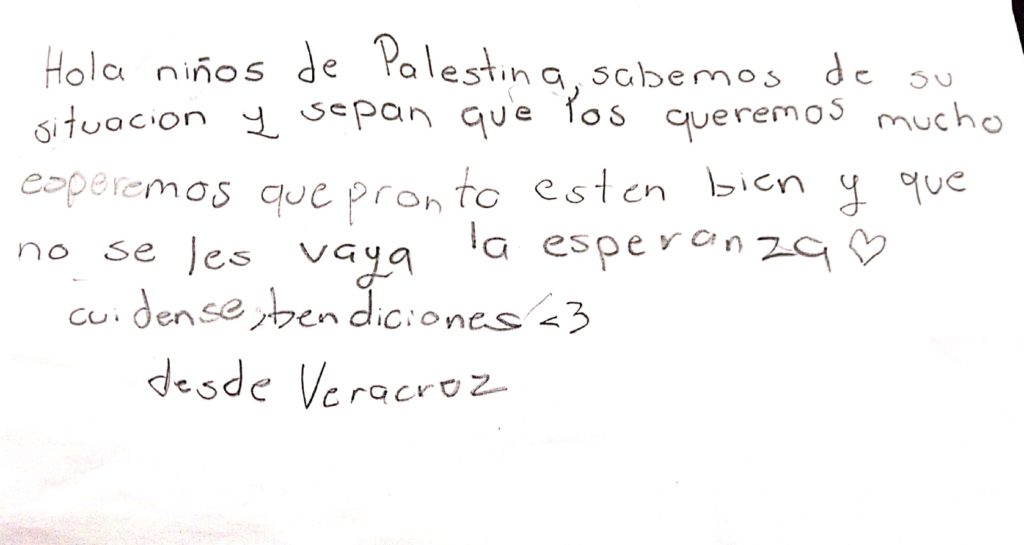 Hola niños de Palestina, sabemos de su
situacion y sepan que los queremos mucho
esperemos que pronto esten bien y que
no se les vaya la esperanza ♡
cuidense, bendiciones <3
desde Veracruz